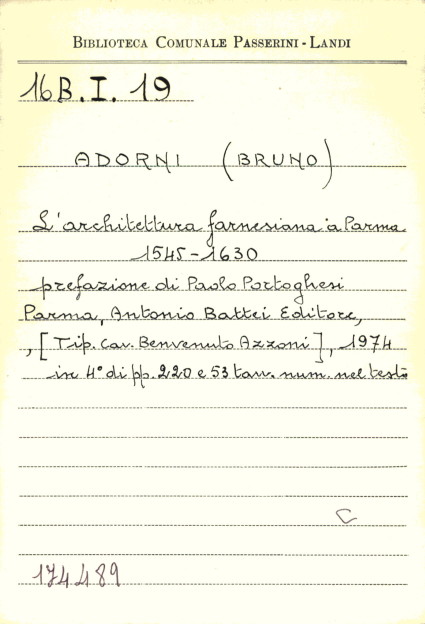 BIBLIOTECA COMUNALE PASSERINI-LANDI
16 B. I. 19
ADORNI (BRUNO)
L'architettura farnesiana a Parma
1545-1630
prefazione di Paolo Portoghesi
Parma, Antonio Battei Editore,
, [Tip. Cav. Benvenuto Azzoni], 1974
in 4° di pp. 220 e 53 tav. num. nel testo
C
174489